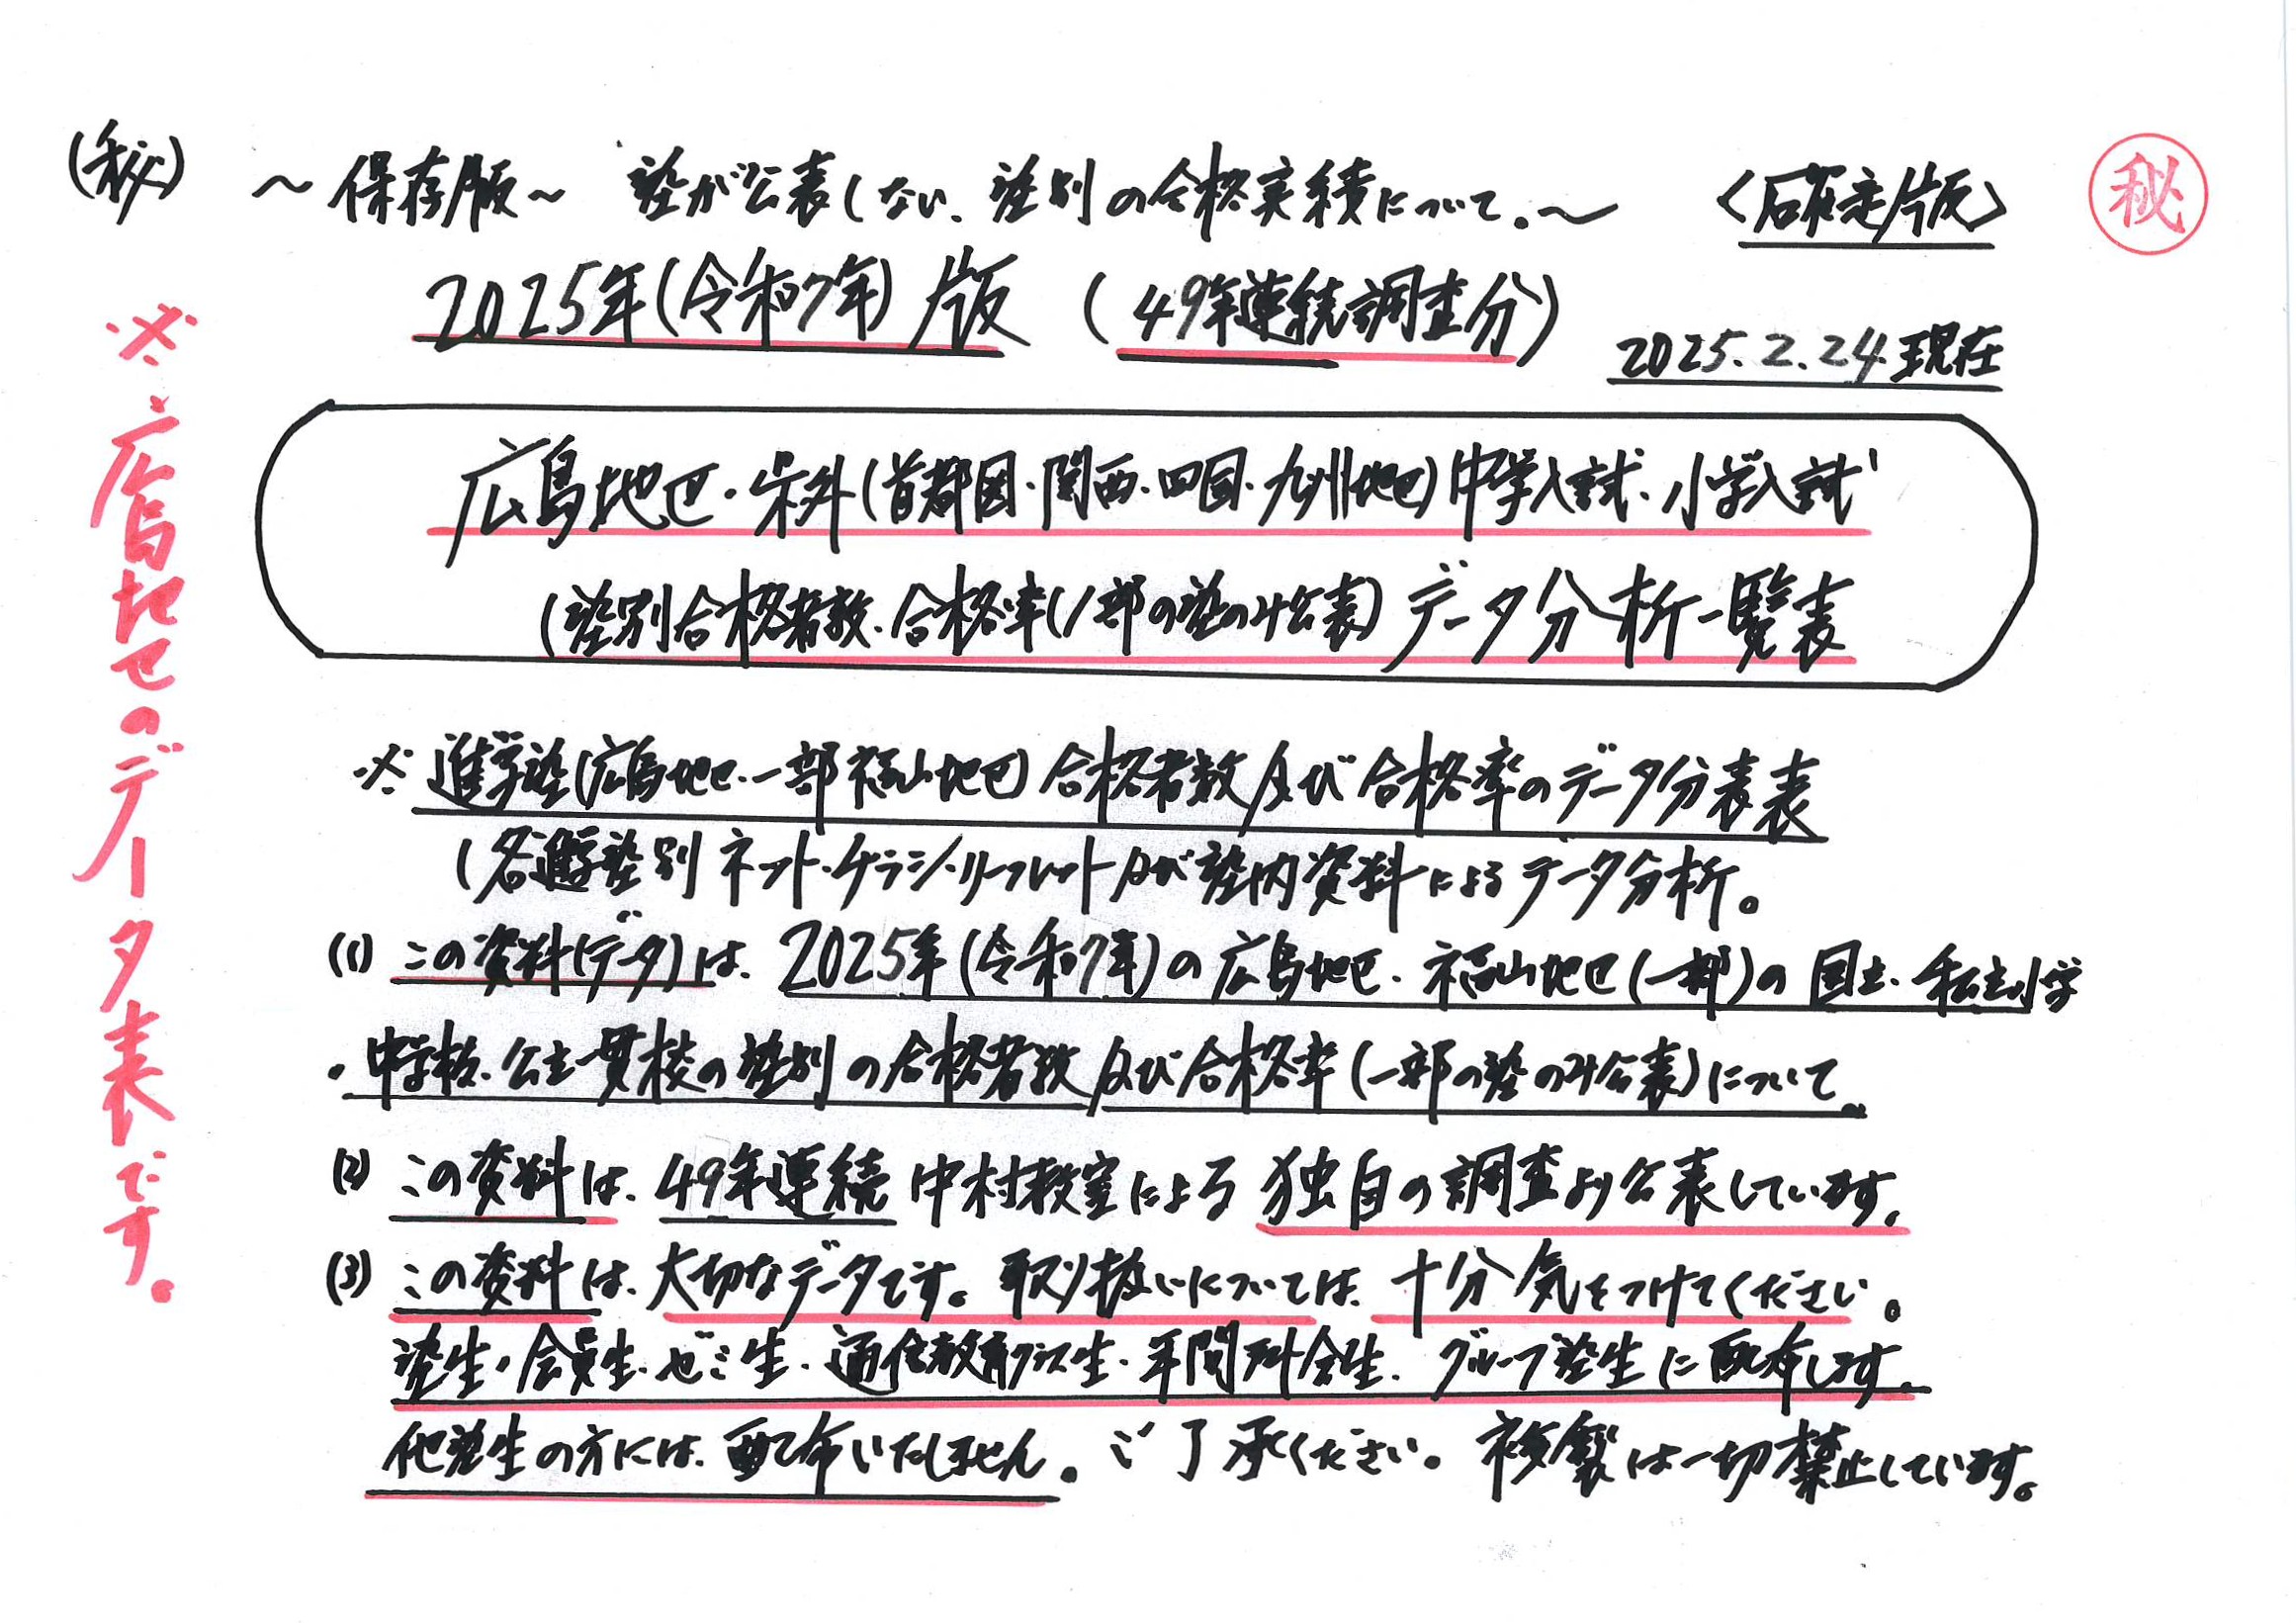 (秘) ～保存版～ 塾が公表しない、塾別の合格実績について。～ <確定版> ㊙
2025年(令和7年)版 (49年連続調査分)
2025.2.24.現在
広島地区・県外(首都圏・関西・四国・九州地区)中学入試・小学入試
(塾別合格者数、合格率(1部の塾のみ公表)データ分析一覧表
※進学塾(広島地区・一部福山地区)合格者数及び合格率のデータ分表表
(各進学塾別ネット・チラシ・リーフレット及び塾内資料によるデータ分析。
(1) この資料(データ)は、2025年(令和7年)の広島地区・福山地区(一部)の国立・私立小学
・中学校、公立一貫校の塾別の合格者数及び合格率(一部の塾のみ公表)について。
(2) この資料は、49年連続中村教室による独自の調査より公表しています。
(3) この資料は、大切なデータです。取り扱いについては、十分気をつけてください。
塾生・会員生・ゼミ生・通信教育クラス生・年間科会生、グループ塾生に配布します。
他塾生の方には、配布いたしません。ご了承ください。複製は一切禁止しています。
※広島地区のデータ表です。